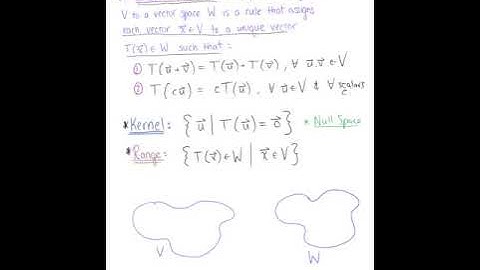 V to a vector space W is a rule that assigns
each vector x⃗ ∈ V to a unique vector
T(x⃗) ∈ W such that:
① T(u⃗ + v⃗) = T(u⃗) + T(v⃗), ∀ u⃗, v⃗ ∈ V
② T(cu⃗) = cT(u⃗), ∀ u⃗ ∈ V & ∀ scalars c
* Kernel: { u⃗ | T(u⃗) = 0⃗ } * Null Space
* Range: { T(x⃗) ∈ W | x⃗ ∈ V }
V W